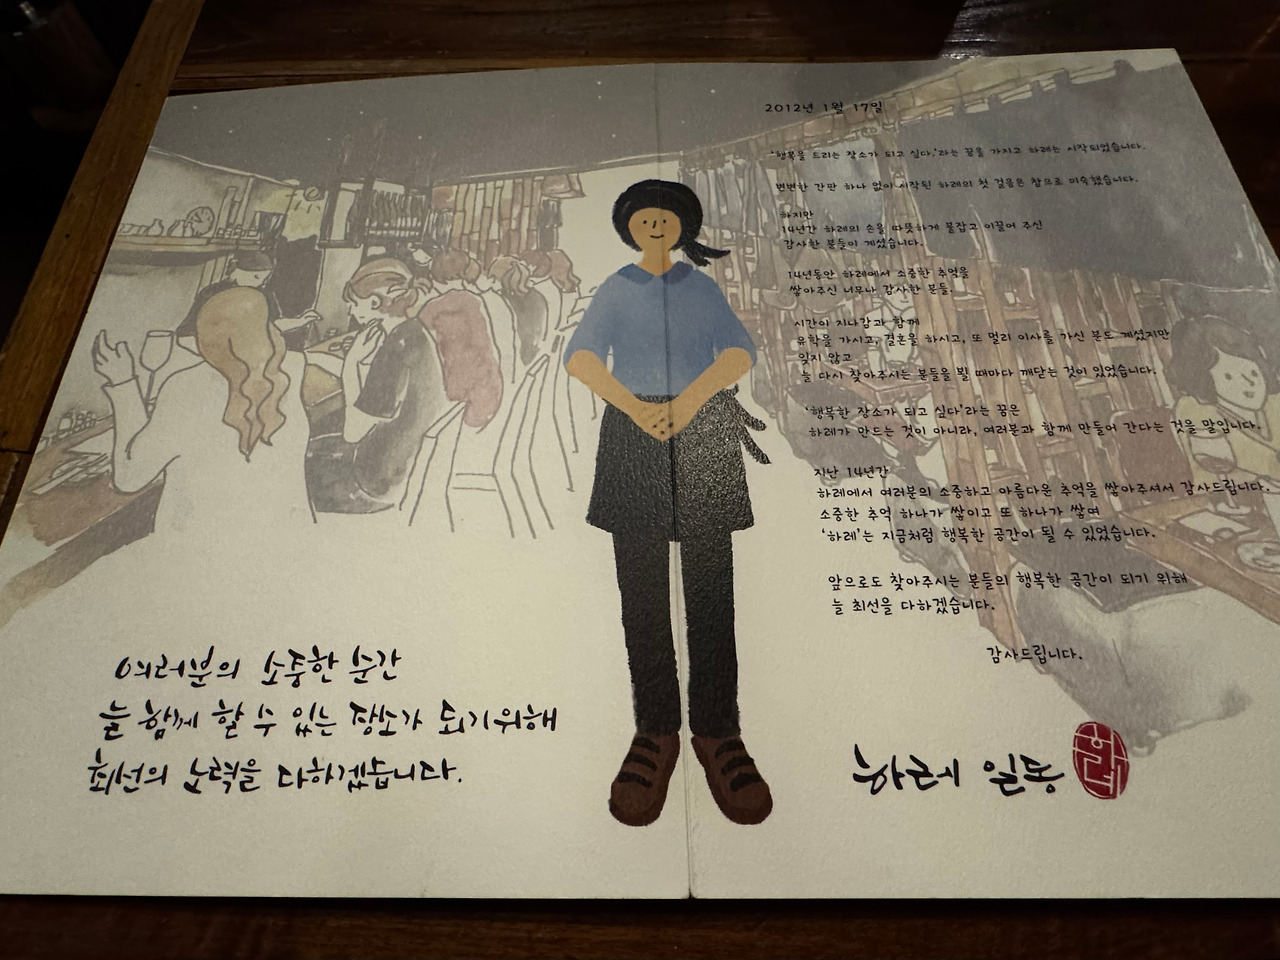 2012년 1월 17일
'행복을 드리는 장소가 되고 싶다.'라는 꿈을 가지고 하레는 시작되었습니다.
변변한 간판 하나 없이 시작된 하레의 첫 걸음은 참으로 미숙했습니다.
하지만
14년간 하레의 손을 따뜻하게 붙잡고 이끌어 주신
감사한 분들이 계셨습니다.
14년동안 하레에서 소중한 추억을
쌓아주신 너무나 감사한 분들.
시간이 지나감과 함께
유학을 가시고, 결혼을 하시고, 또 멀리 이사를 가신 분도 계셨지만
잊지 않고
늘 다시 찾아주시는 분들을 뵐 때마다 깨닫는 것이 있었습니다.
'행복한 장소가 되고 싶다'라는 꿈은
하레가 만드는 것이 아니라, 여러분과 함께 만들어 간다는 것을 말입니다.
지난 14년간
하레에서 여러분의 소중하고 아름다운 추억을 쌓아주셔서 감사드립니다.
소중한 추억 하나가 쌓이고 또 하나가 쌓여
'하레'는 지금처럼 행복한 공간이 될 수 있었습니다.
앞으로도 찾아주시는 분들의 행복한 공간이 되기 위해
늘 최선을 다하겠습니다.
감사드립니다.
여러분의 소중한 순간
늘 함께 할 수 있는 장소가 되기위해
최선의 노력을 다하겠습니다.
하레 일동
하레